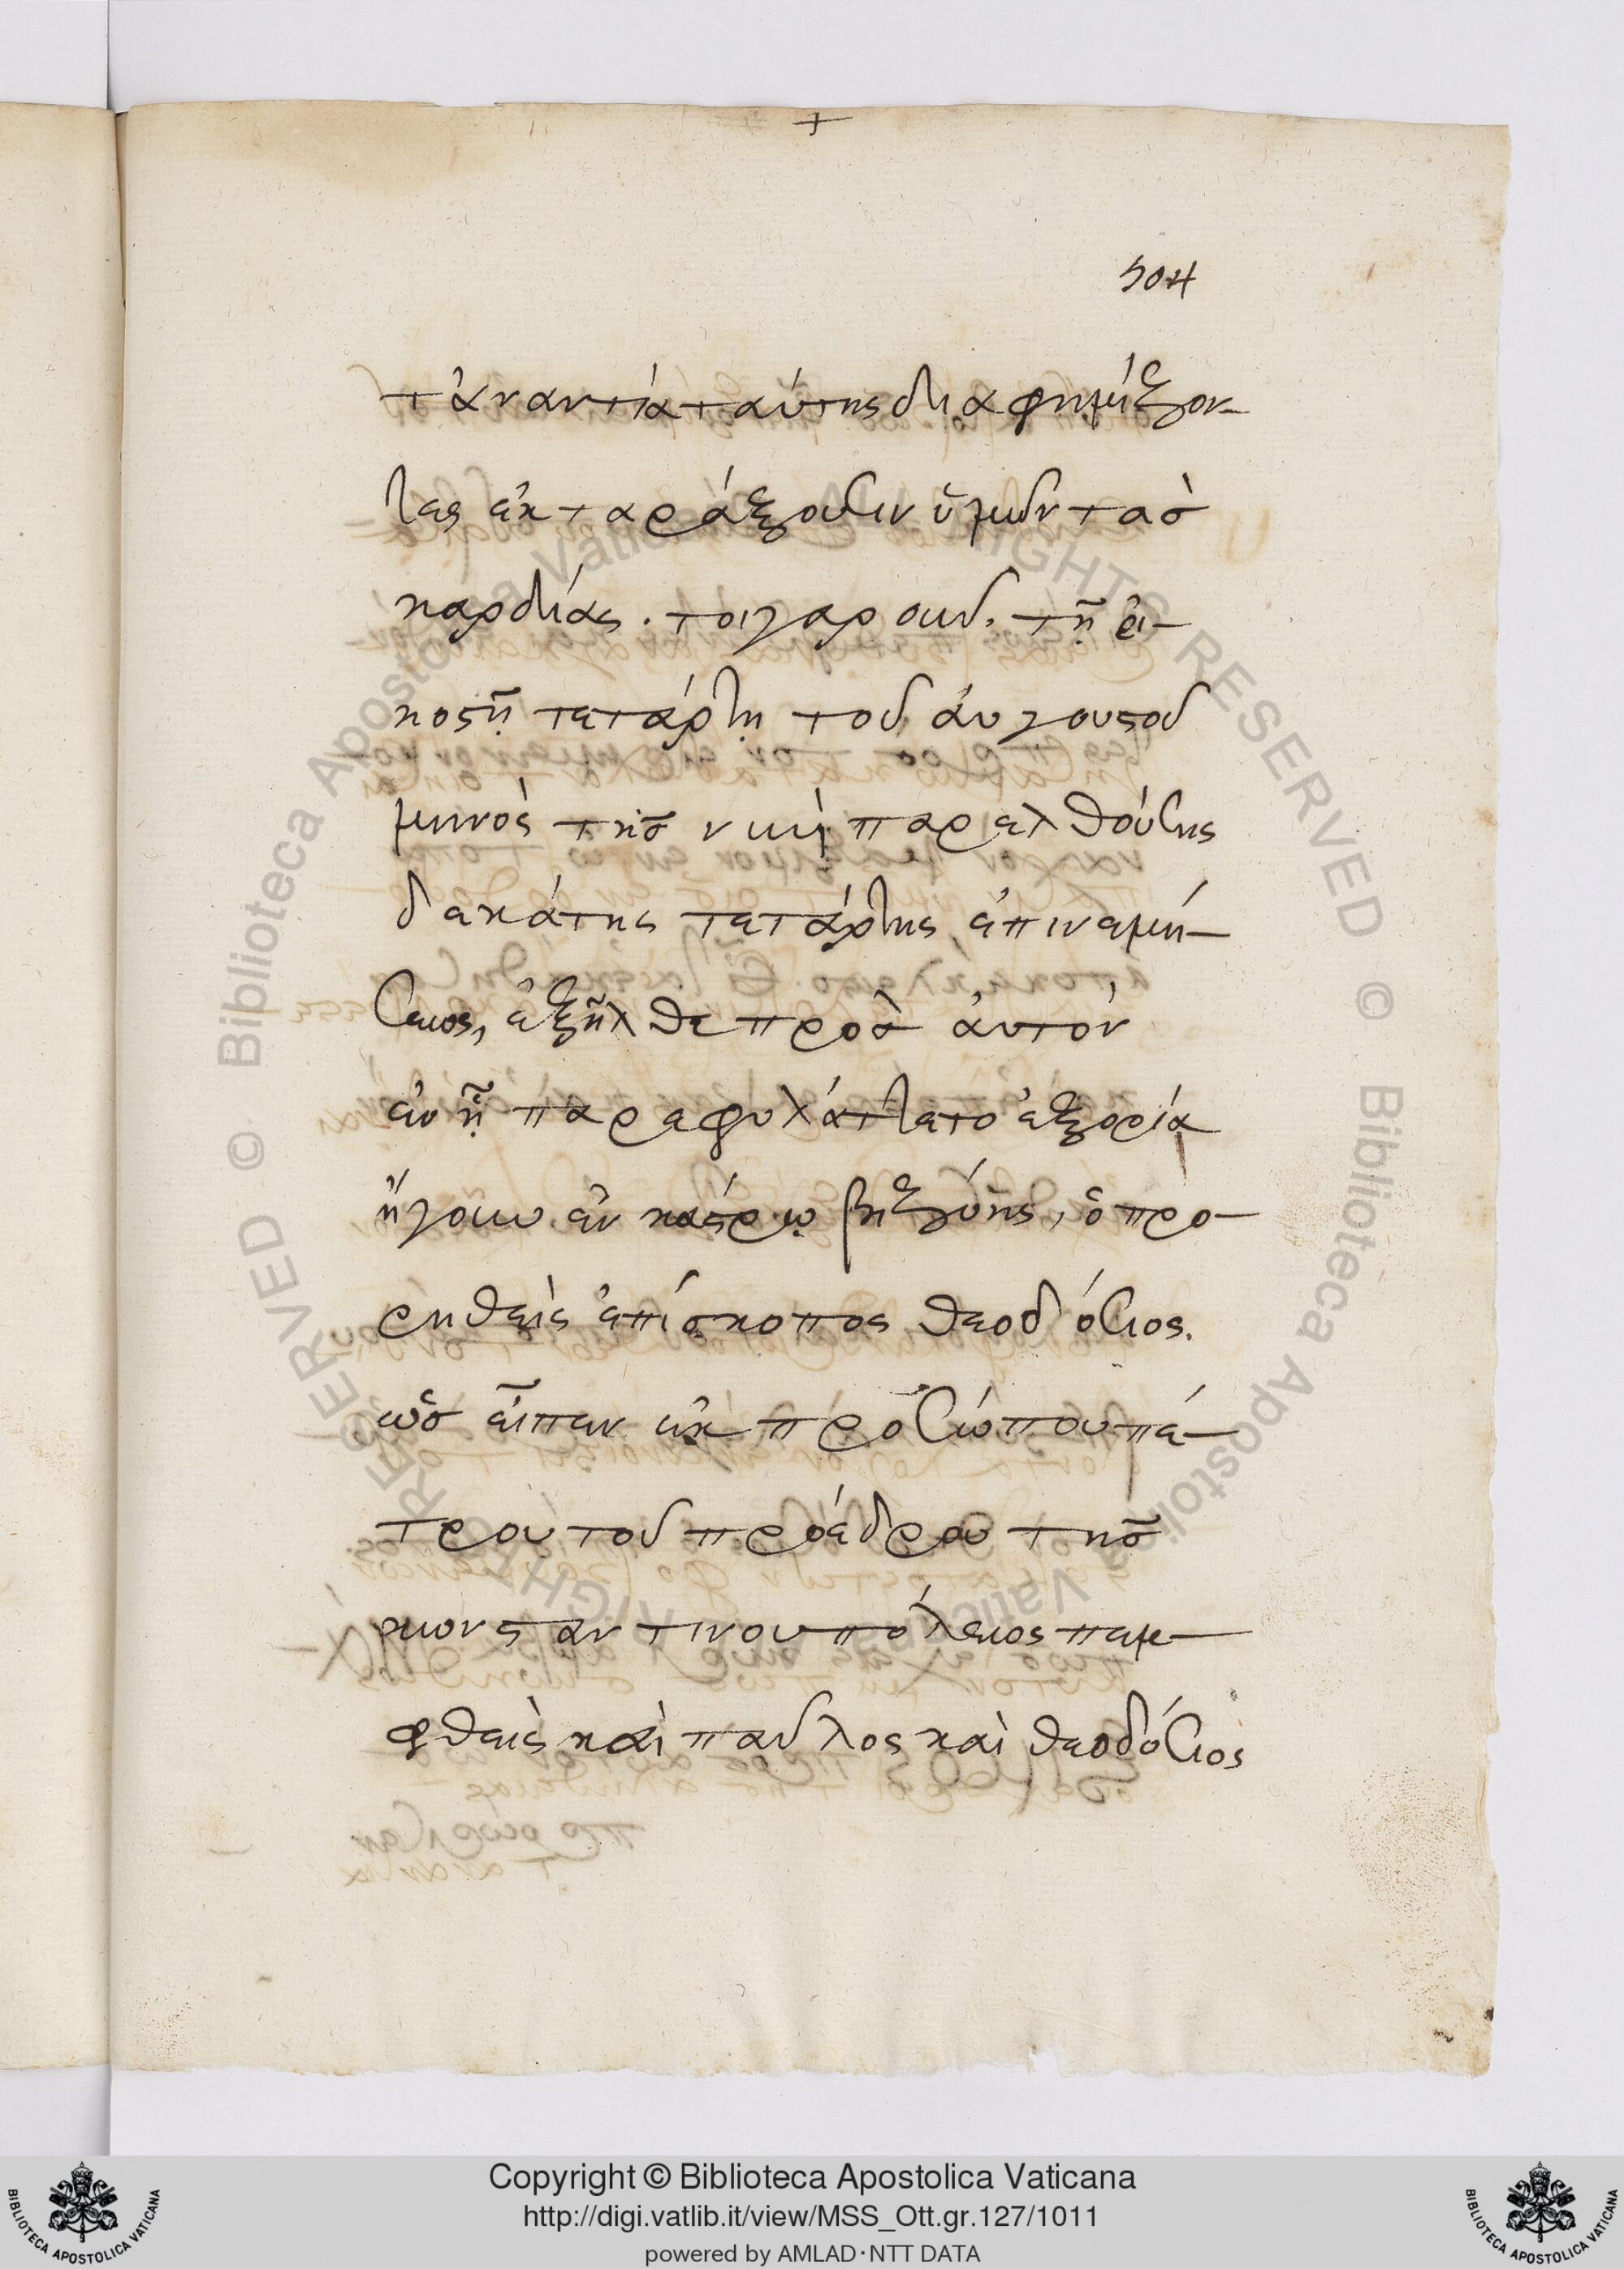 504
τἀναντία ταύτης διαφημίζον-
τες ἐκταράξουσιν ὑμῶν τὰσ
καρδίας. τοιγαροῦν. τῆ εἰ-
κοστῆ τετάρτη τοῦ ἀυγούστου
μηνὸς τῆσ νυνὶ παρελθούσης
δεκάτης τετάρτης ἐπινεμή-
σεως, ἐξῆλθε πρὸσ ἀυτὸν
ἐν ἧ παρεφυλάττετο ἐξορία
ἤγουν ἐν κάστρω βηζύης, ὁ προ-
ρηθεὶς ἐπίσκοπος θεοδόσιος.
ὡσ εἶπεν ἐκ προσώπου πέ-
τρου τοῦ προέδρου τῆσ
κωνσταντινουπόλεως πεμ-
φθεὶς καὶ παῦλος καὶ θεοδόσιος
Copyright © Biblioteca Apostolica Vaticana
http://digi.vatlib.it/view/MSS_Ott.gr.127/1011
powered by AMLAD·NTT DATA
BIBLIOTECA APOSTOLICA VATICANA
BIBLIOTECA APOSTOLICA VATICANA
© Biblioteca Apostolica Vaticana ALL RIGHTS RESERVED
© Biblioteca Apostolica Vaticana ALL RIGHTS RESERVED